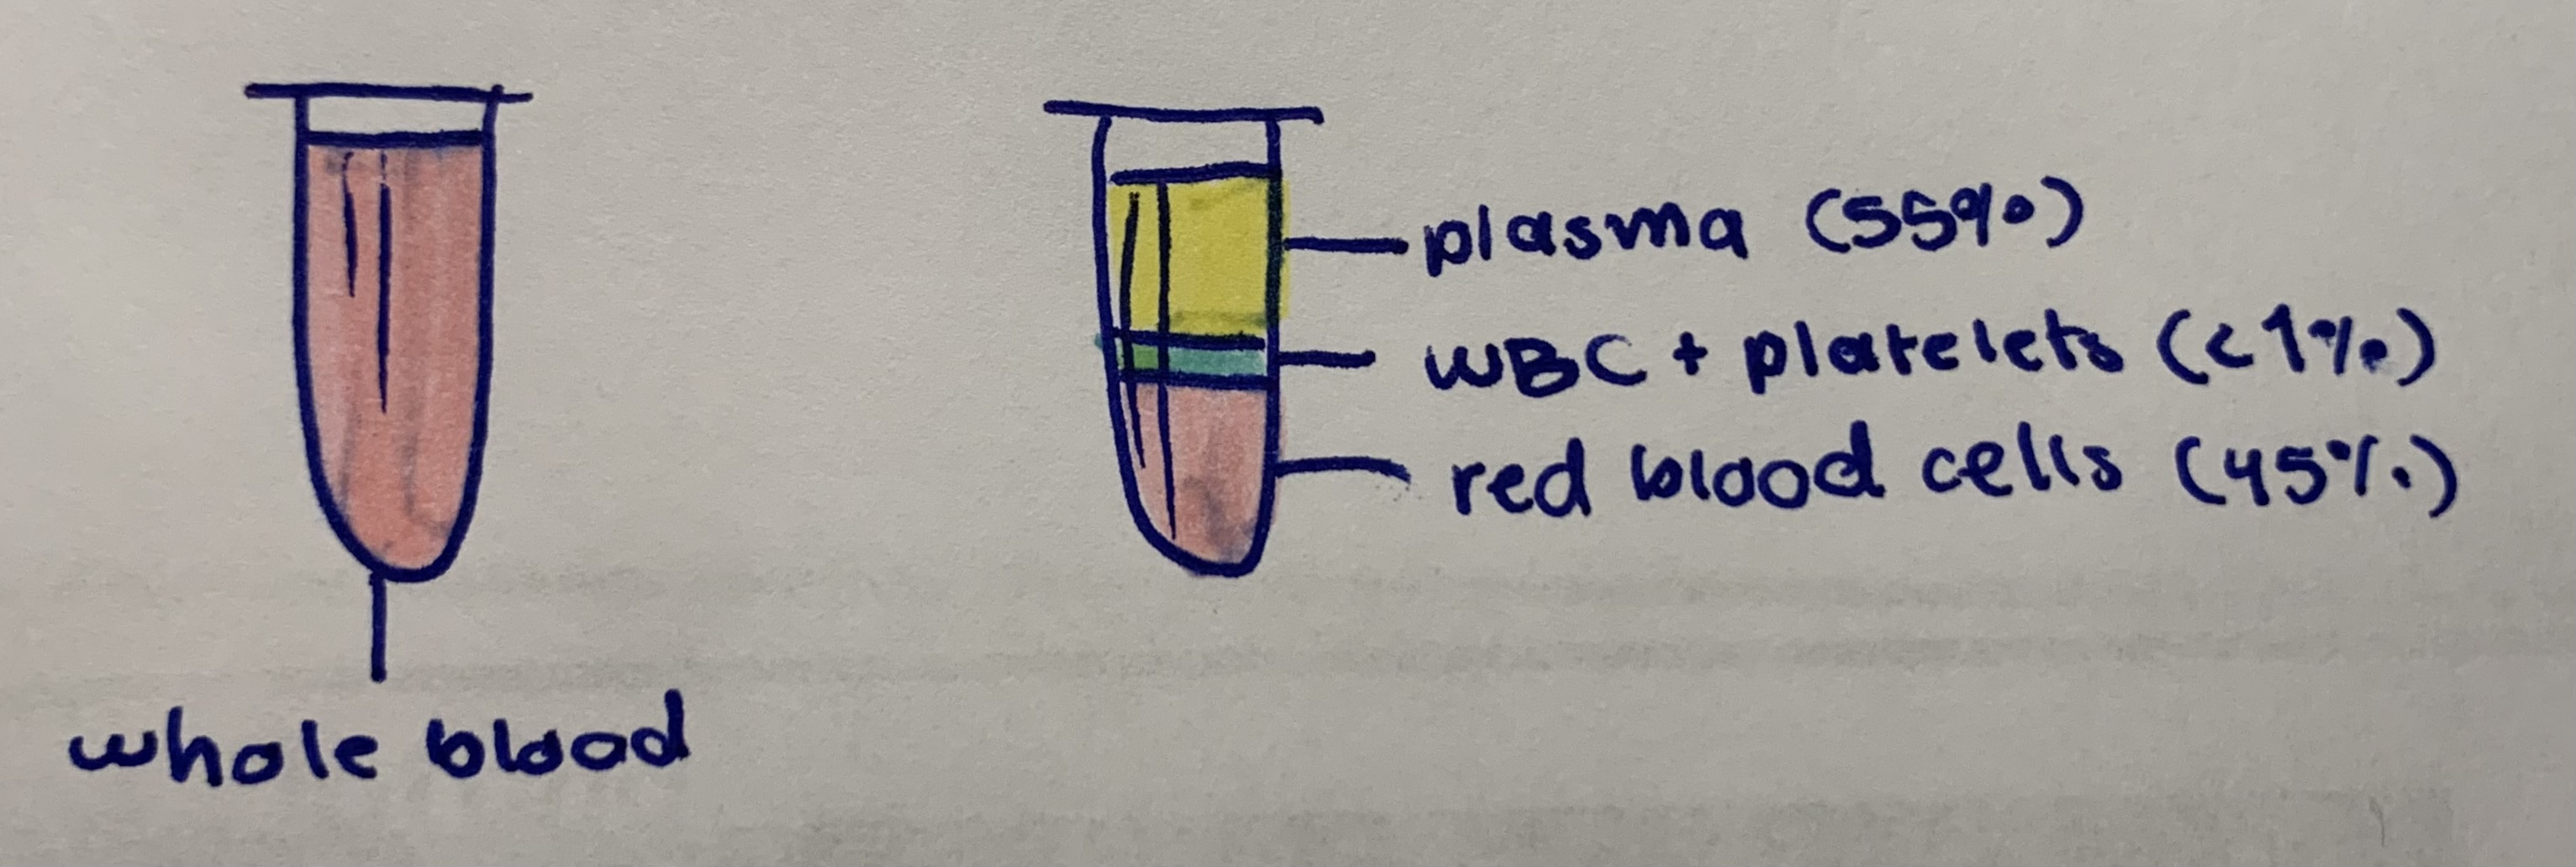 plasma (55%)
WBC + platelets (<1%)
red blood cells (45%)
whole blood